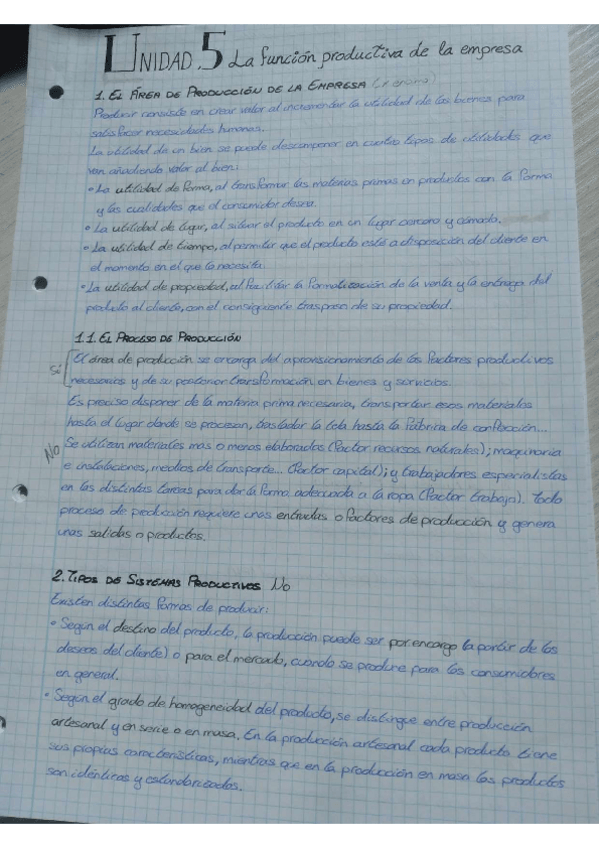 UNIDAD 5 La función productiva de la empresa
1. EL ÁREA DE PRODUCCIÓN DE LA EMPRESA
Producir consiste en crear valor al incrementar la utilidad de los bienes para
satisfacer necesidades humanas.
La utilidad de un bien se puede descomponer en cuatro tipos de utilidades que
van añadiendo valor al bien:
• La utilidad de forma, al transformar las materias primas en productos con la forma
y las cualidades que el consumidor desea.
• La utilidad de lugar, al situar el producto en un lugar cercano y cómodo.
• La utilidad de tiempo, al permitir que el producto esté a disposición del cliente en
el momento en el que lo necesita.
• La utilidad de propiedad, al facilitar la formalización de la venta y la entrega del
producto al cliente, con el consiguiente traspaso de su propiedad.
1.1. EL PROCESO DE PRODUCCIÓN
Sí El área de producción se encarga del aprovisionamiento de los factores productivos
necesarios y de su posterior transformación en bienes y servicios.
Es preciso disponer de la materia prima necesaria, transportar esos materiales
hasta el lugar donde se procesan, trasladar la tela hasta la fábrica de confección...
No Se utilizan materiales mas o menos elaborados (factor recursos naturales); maquinaria
e instalaciones, medios de transporte... (factor capital); y trabajadores especialistas
en las distintas tareas para dar la forma adecuada a la ropa (factor trabajo). Todo
proceso de producción requiere unas entradas o factores de producción y genera
unas salidas o productos.
2. TIPOS DE SISTEMAS PRODUCTIVOS No
Existen distintas formas de producir:
• Según el destino del producto, la producción puede ser por encargo (a partir de los
deseos del cliente) o para el mercado, cuando se produce para los consumidores
en general.
• Según el grado de homogeneidad del producto, se distingue entre producción
artesanal y en serie o en masa. En la producción artesanal cada producto tiene
sus propias características, mientras que en la producción en masa los productos
son idénticos y estandarizados.